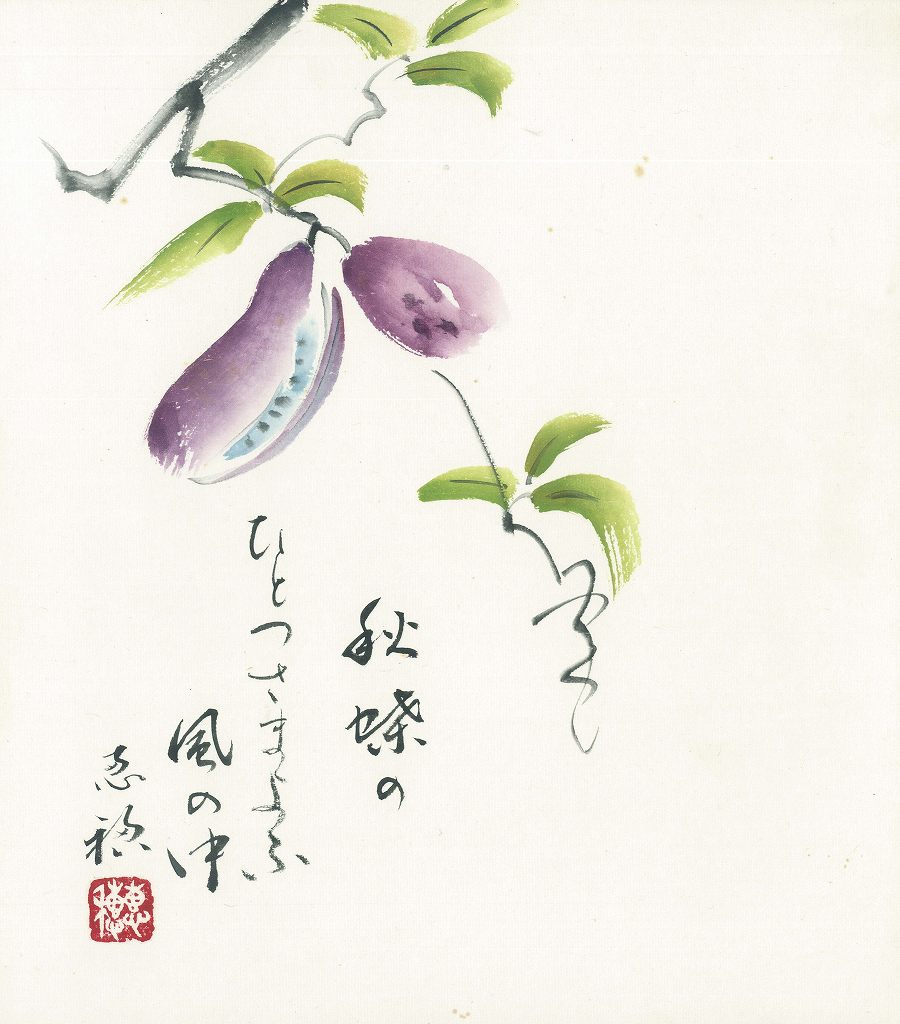 秋蝶の
ひとつさまよふ
風の中
恵穂
恵穂